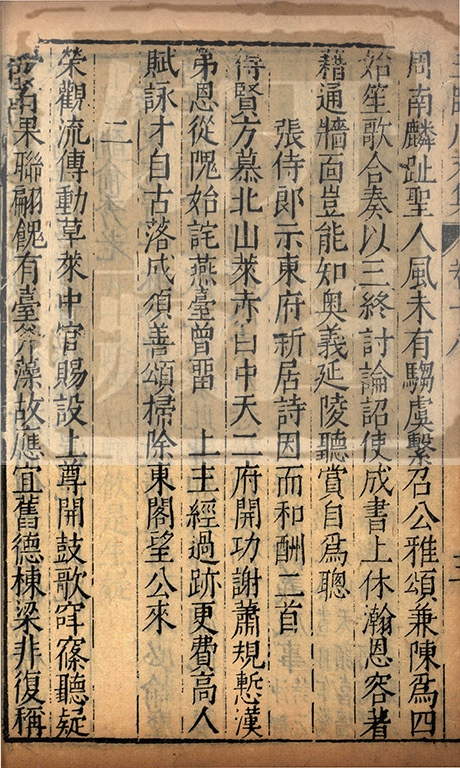 周南麟趾聖人風未有騶虞繫召公雅頌兼陳爲四
始笙歌合奏以三終討論詔使成書上休瀚恩容著
藉通牆面豈能如奧義延陵聽賞自爲聰
張侍郎示東府新居詩因而和酬二首
得賢方慕北山萊赤白中天二府開功謝蕭規慙漢
第恩從隗始詫燕臺曾畱 上主經過跡更費高人
賦詠才自古落成須善頌掃除東閣望公來
二
榮觀流傳動草萊中官賜設上尊開鼓歌窅窱聽疑
果聯翩餽有臺斧藻故應宜舊德棟梁非復稱